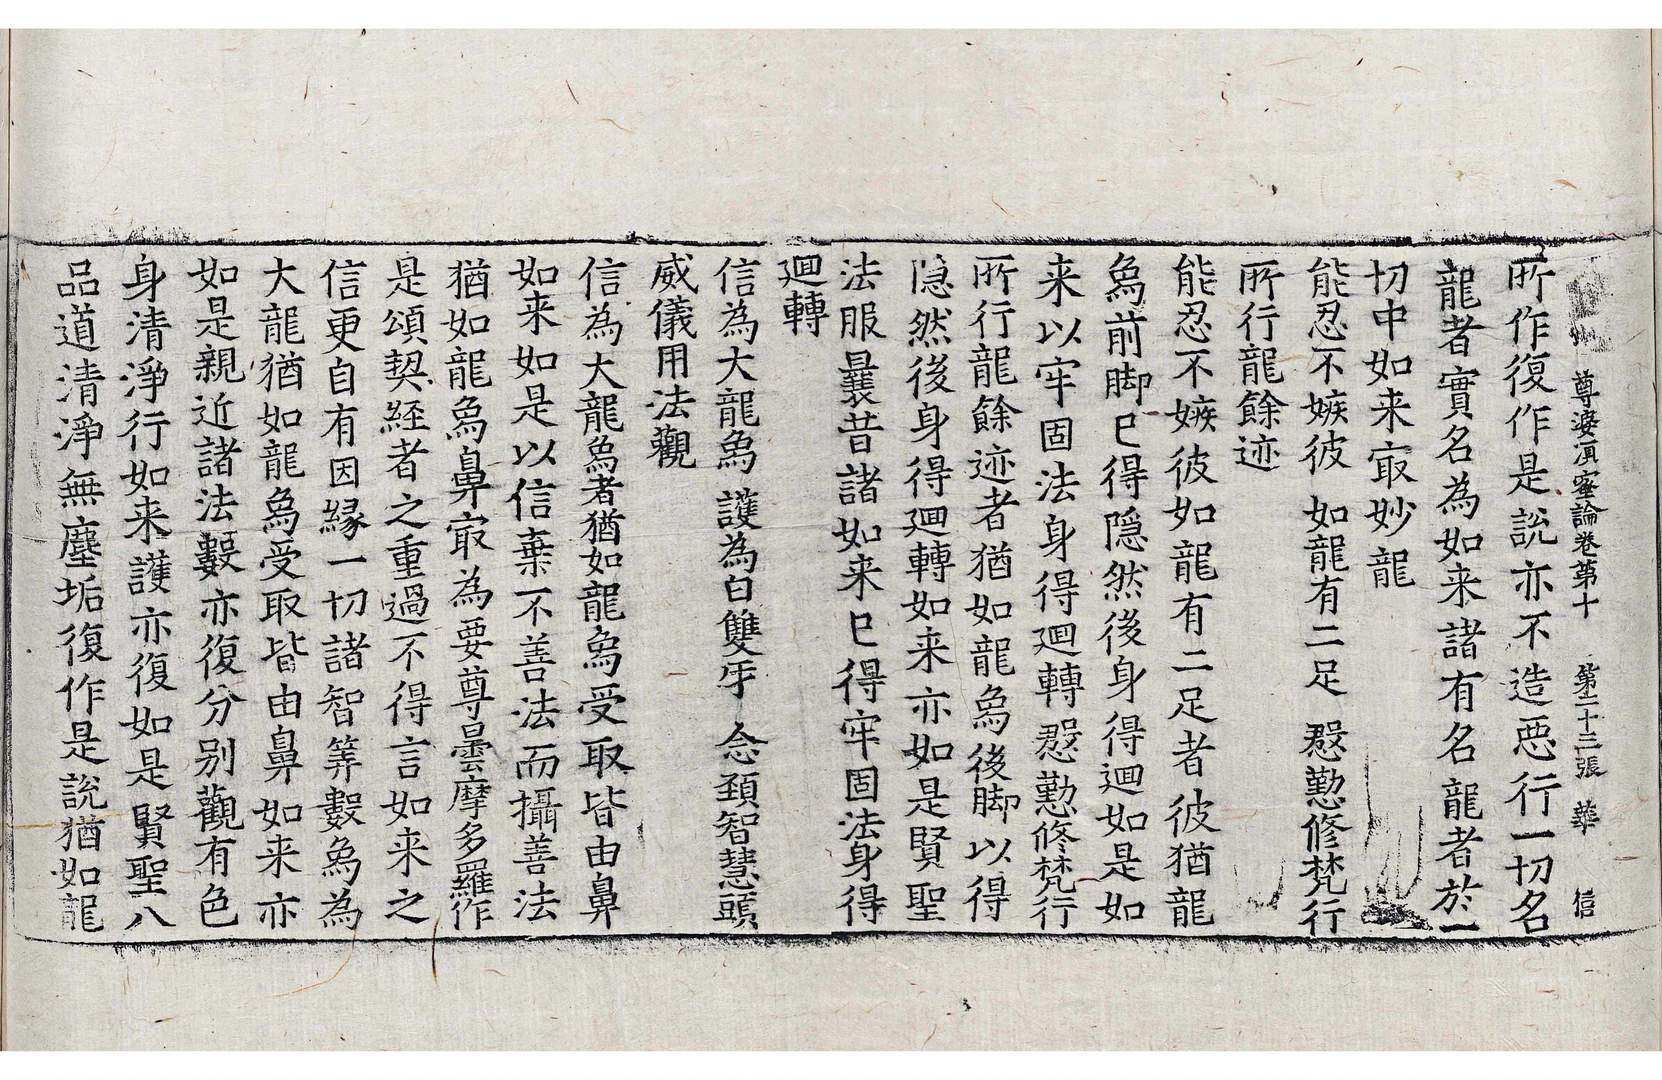 尊婆湏蜜論卷第十 第二十三張 華 信
所作復作是說亦不造惡行一切名
龍者實名為如来諸有名龍者於一
切中如来㝡妙龍
能忍不嫉彼 如龍有二足 慇懃修梵行
所行龍餘迹
能忍不嫉彼如龍有二足者彼猶龍
爲前脚已得隠然後身得迴如是如
来以牢固法身得迴轉慇懃修梵行
所行龍餘迹者猶如龍爲後脚以得
隠然後身得迴轉如来亦如是賢聖
法服曩昔諸如来已得牢固法身得
迴轉
信為大龍爲 護為白雙牙 念頚智慧頭
威儀用法觀
信為大龍爲者猶如龍爲受取皆由鼻
如来如是以信棄不善法而攝善法
猶如龍爲鼻㝡為要尊曇摩多羅作
是頌契経者之重過不得言如来之
信更自有因縁一切諸智等數爲為
大龍猶如龍爲受取皆由鼻如来亦
如是親近諸法數亦復分别觀有色
身清淨行如来護亦復如是賢聖八
品道清淨無塵垢復作是說猶如龍